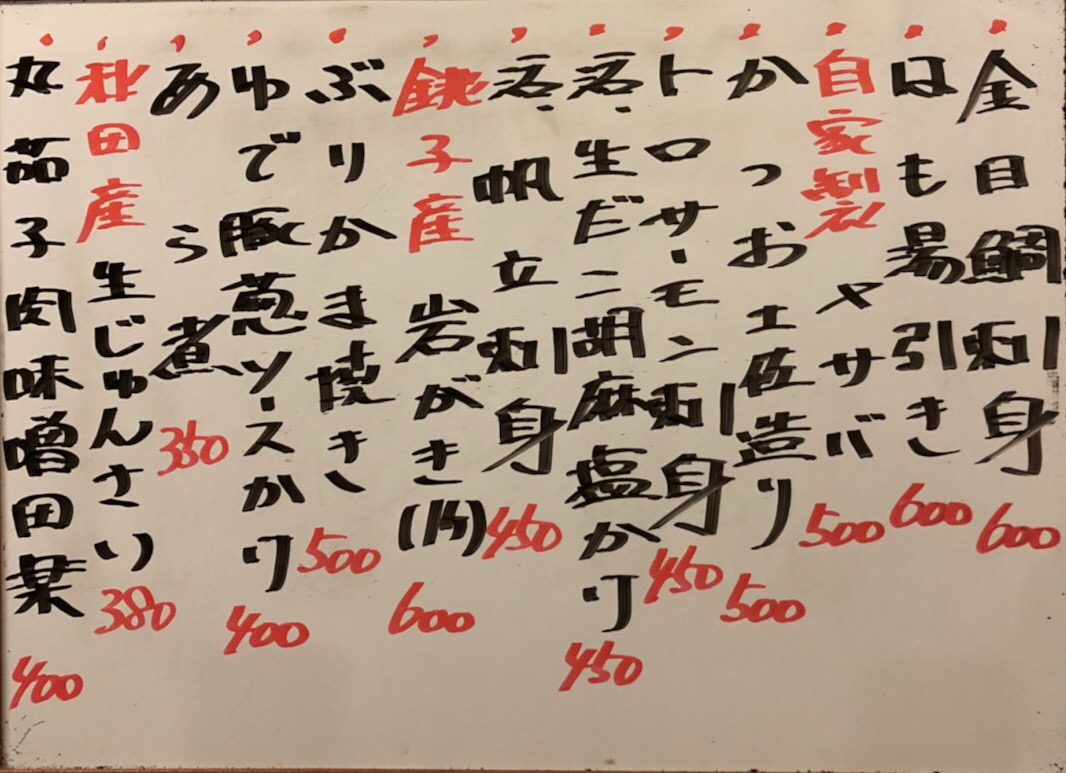 ・金目鯛刺身 600
・はも湯引き 600
・自家製 〆サバ 500
・かつお土佐造り 500
・トロサーモン刺身 450
・生だこ胡麻塩かけ 450
・帆立刺身 450
・銚子産 岩がき(1ケ) 600
・ぶりかま焼き 500
・ゆで豚葱ソースかけ 400
・あら煮 350
・秋田産 生じゅんさい 380
・丸茄子肉味噌田楽 400